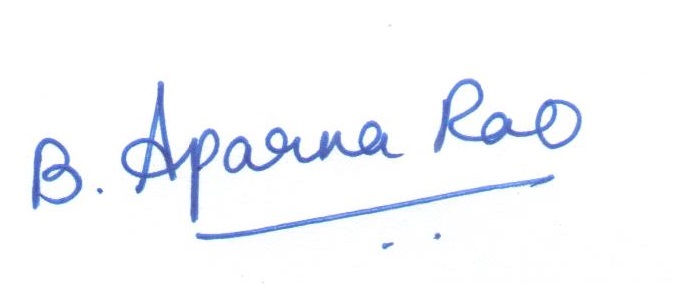 B. Aparna Rao